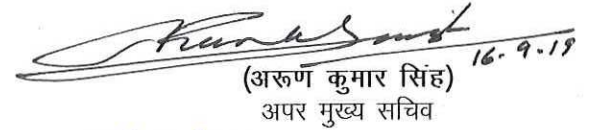 16-9-19
(अरूण कुमार सिंह)
अपर मुख्य सचिव